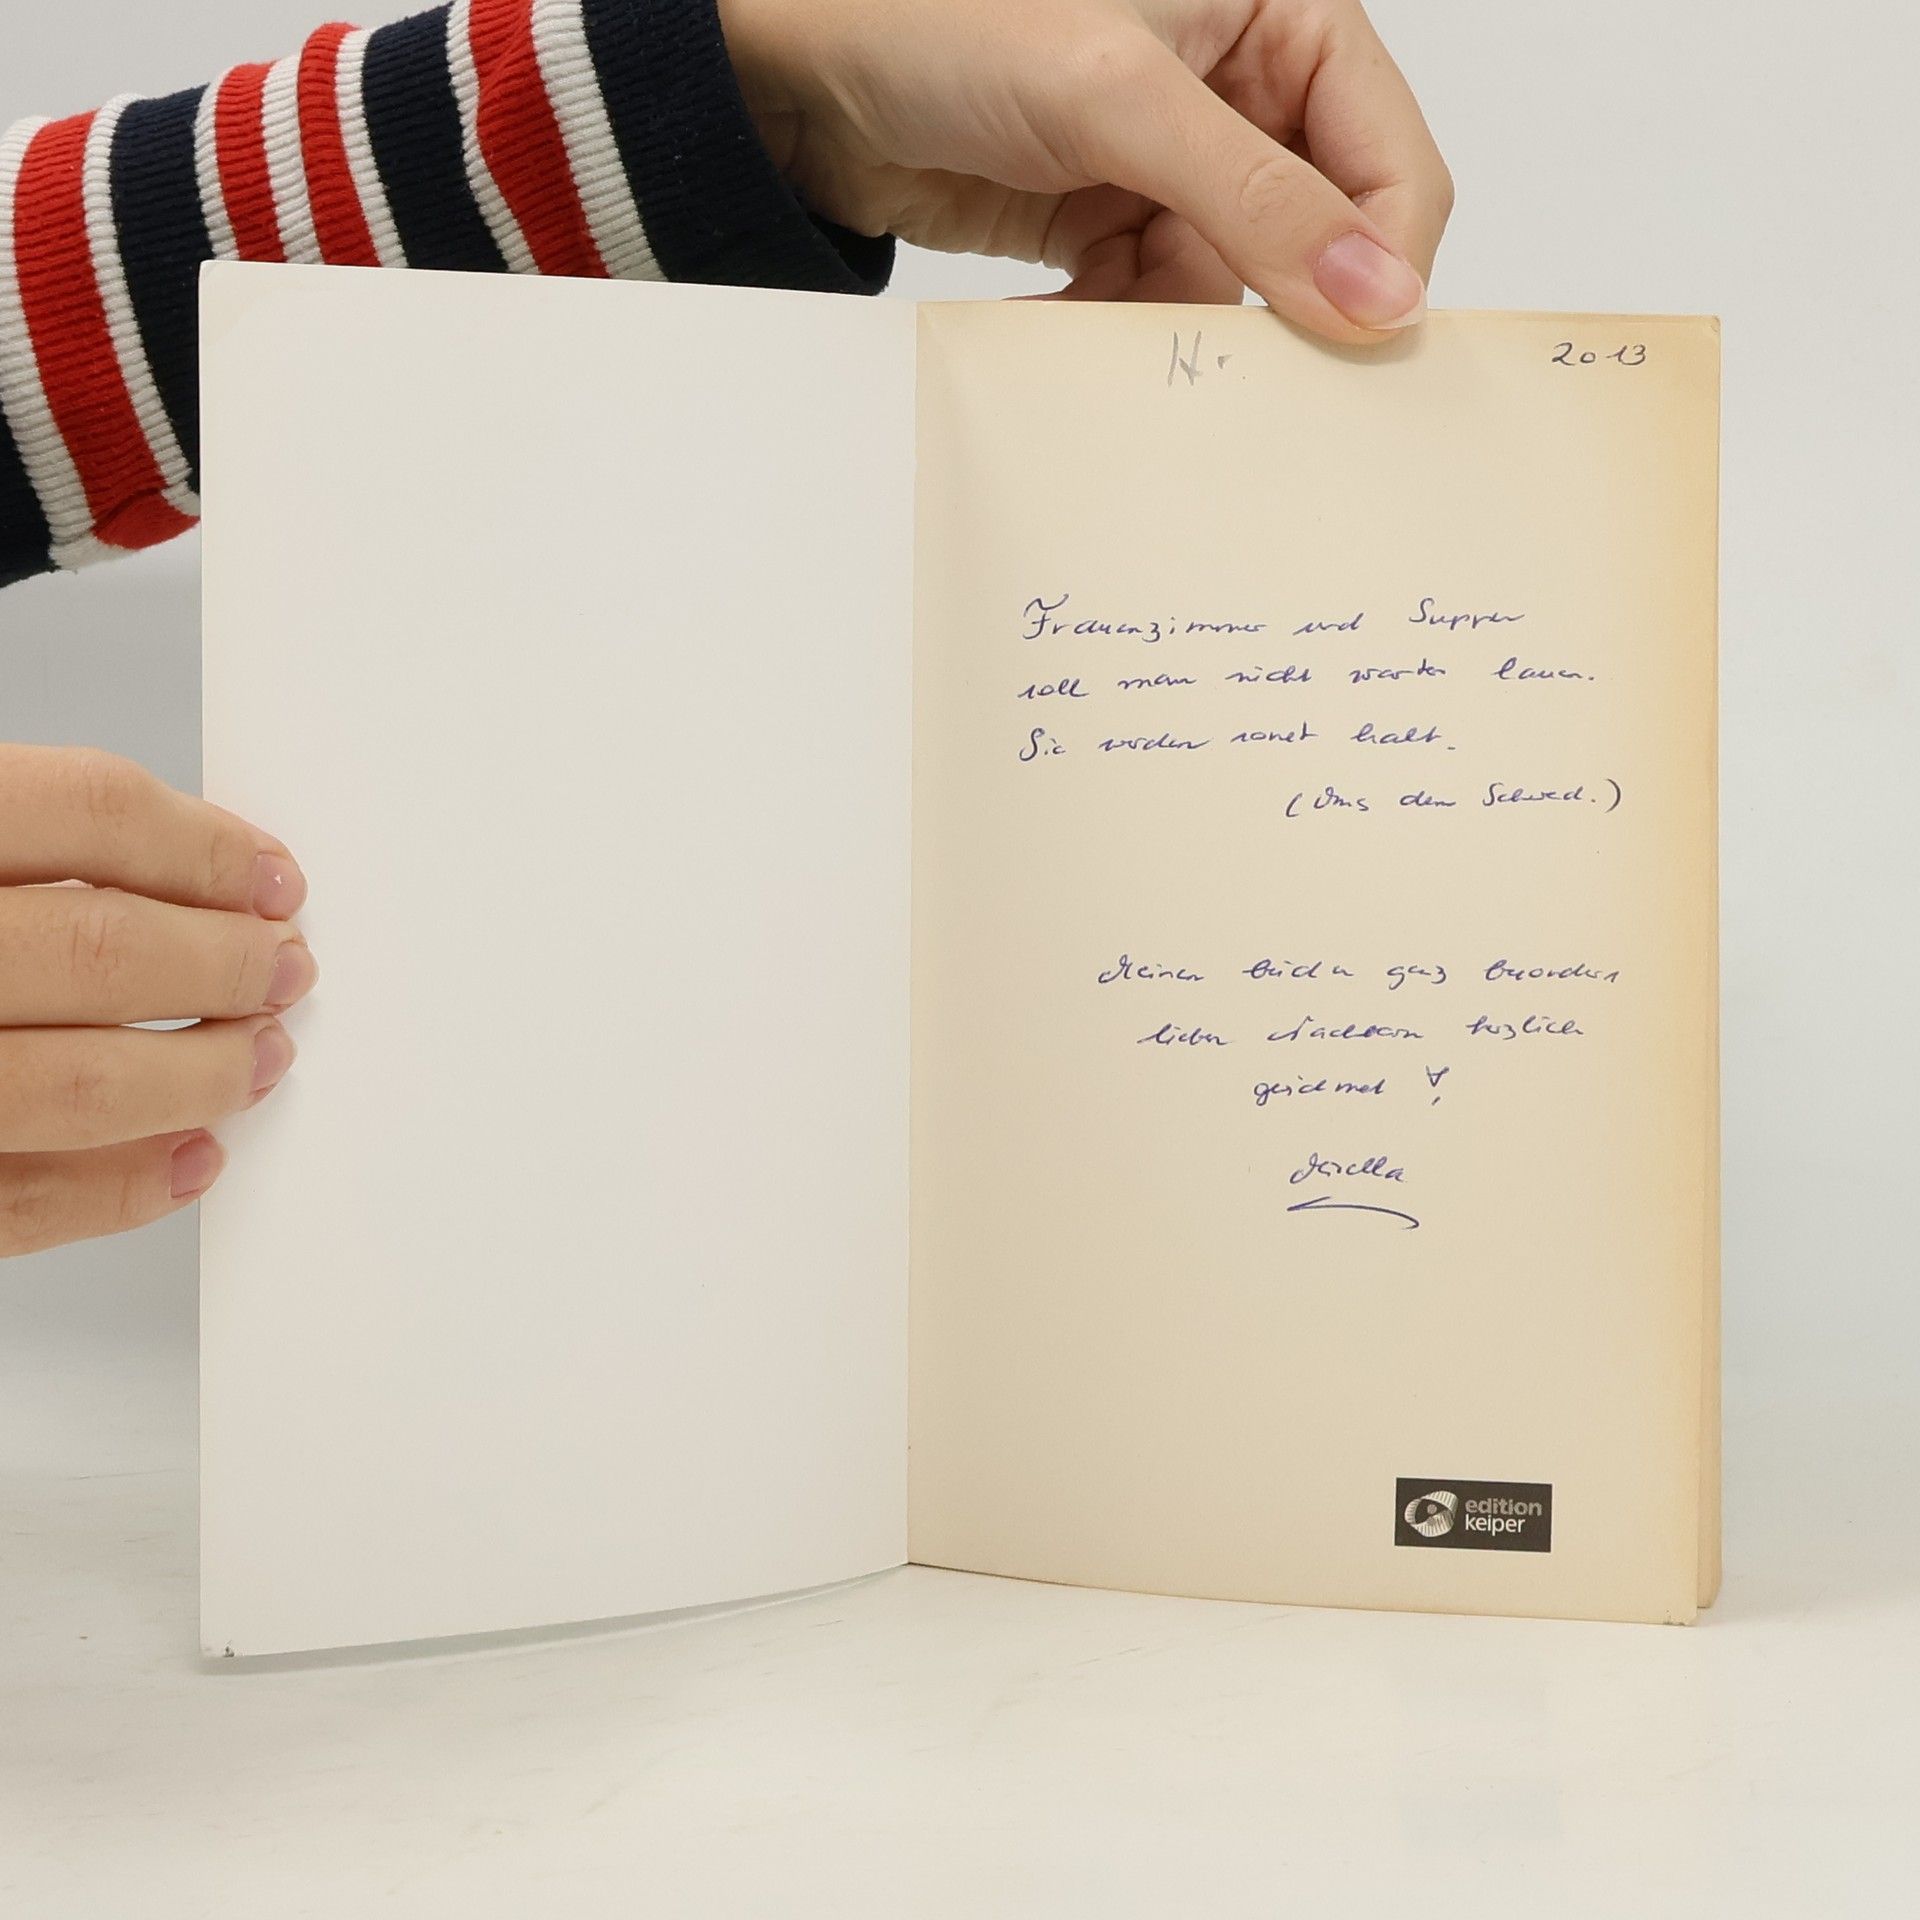 H.
2013
Frauenzimmer und Suppen
soll man nicht warten lassen.
Sie werden sonst kalt.
(Aus dem Schwed.)
Meinen beiden ganz besonders
lieben Nachbarn herzlich
gewidmet
edition
keiper